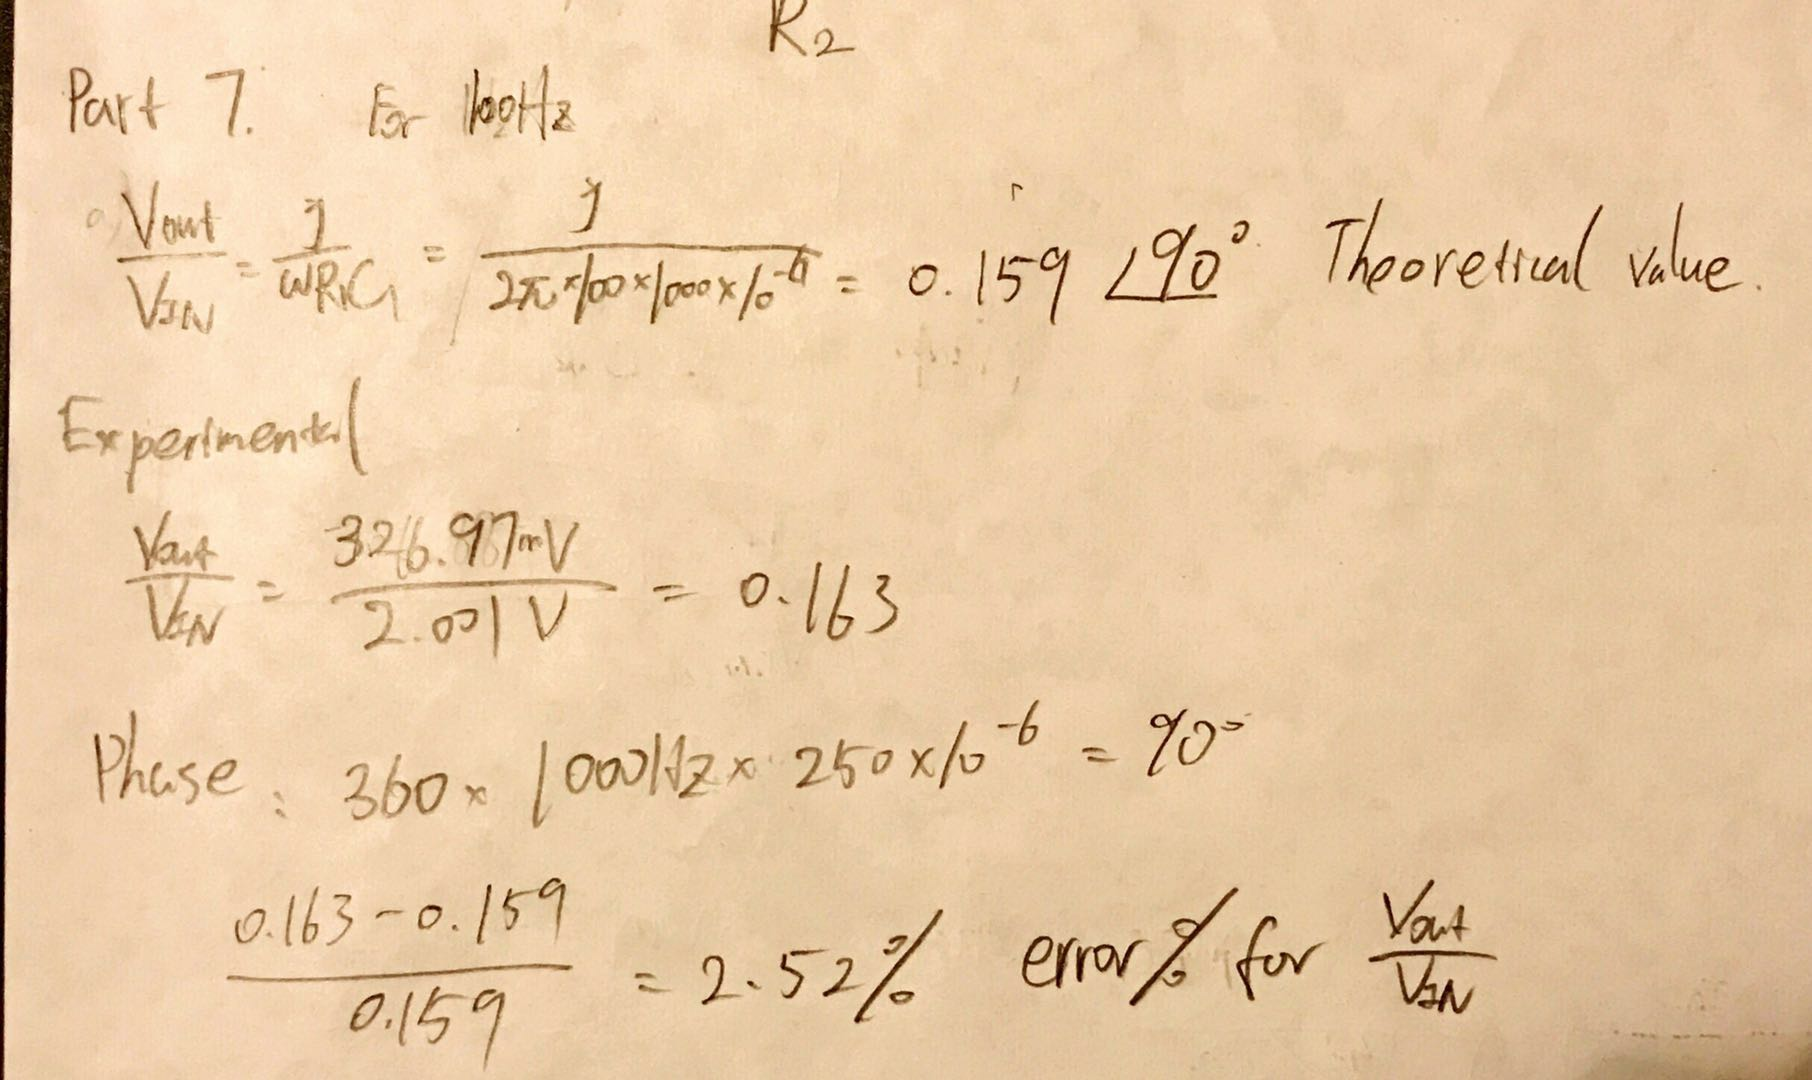 R₂
Part 7. For 100Hz
Vout/VIN = j/ωR₁C₁ = j/2π×100×1000×10⁻⁶ = 0.159 ∠90° Theoretical value.
Experimental
Vout/VIN = 326.97mV/2.001V = 0.163
Phase: 360 × 1000Hz × 250×10⁻⁶ = 90°
0.163-0.159/0.159 = 2.52% error% for Vout/VIN